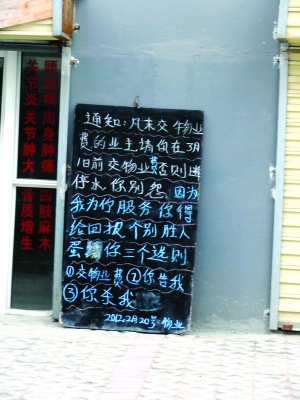 腰腿痛 周身肿痛 四肢麻木
关节炎 关节肿大 骨质增生
通知:凡未交物业
费的业主请在3月
1日前交物业费否则
停水你别怨 因为
我为你服务你得
给回报 个别 人
蛋 给你三个选则
①交物业费②你告我
③你杀我
2012.2.20号 物业